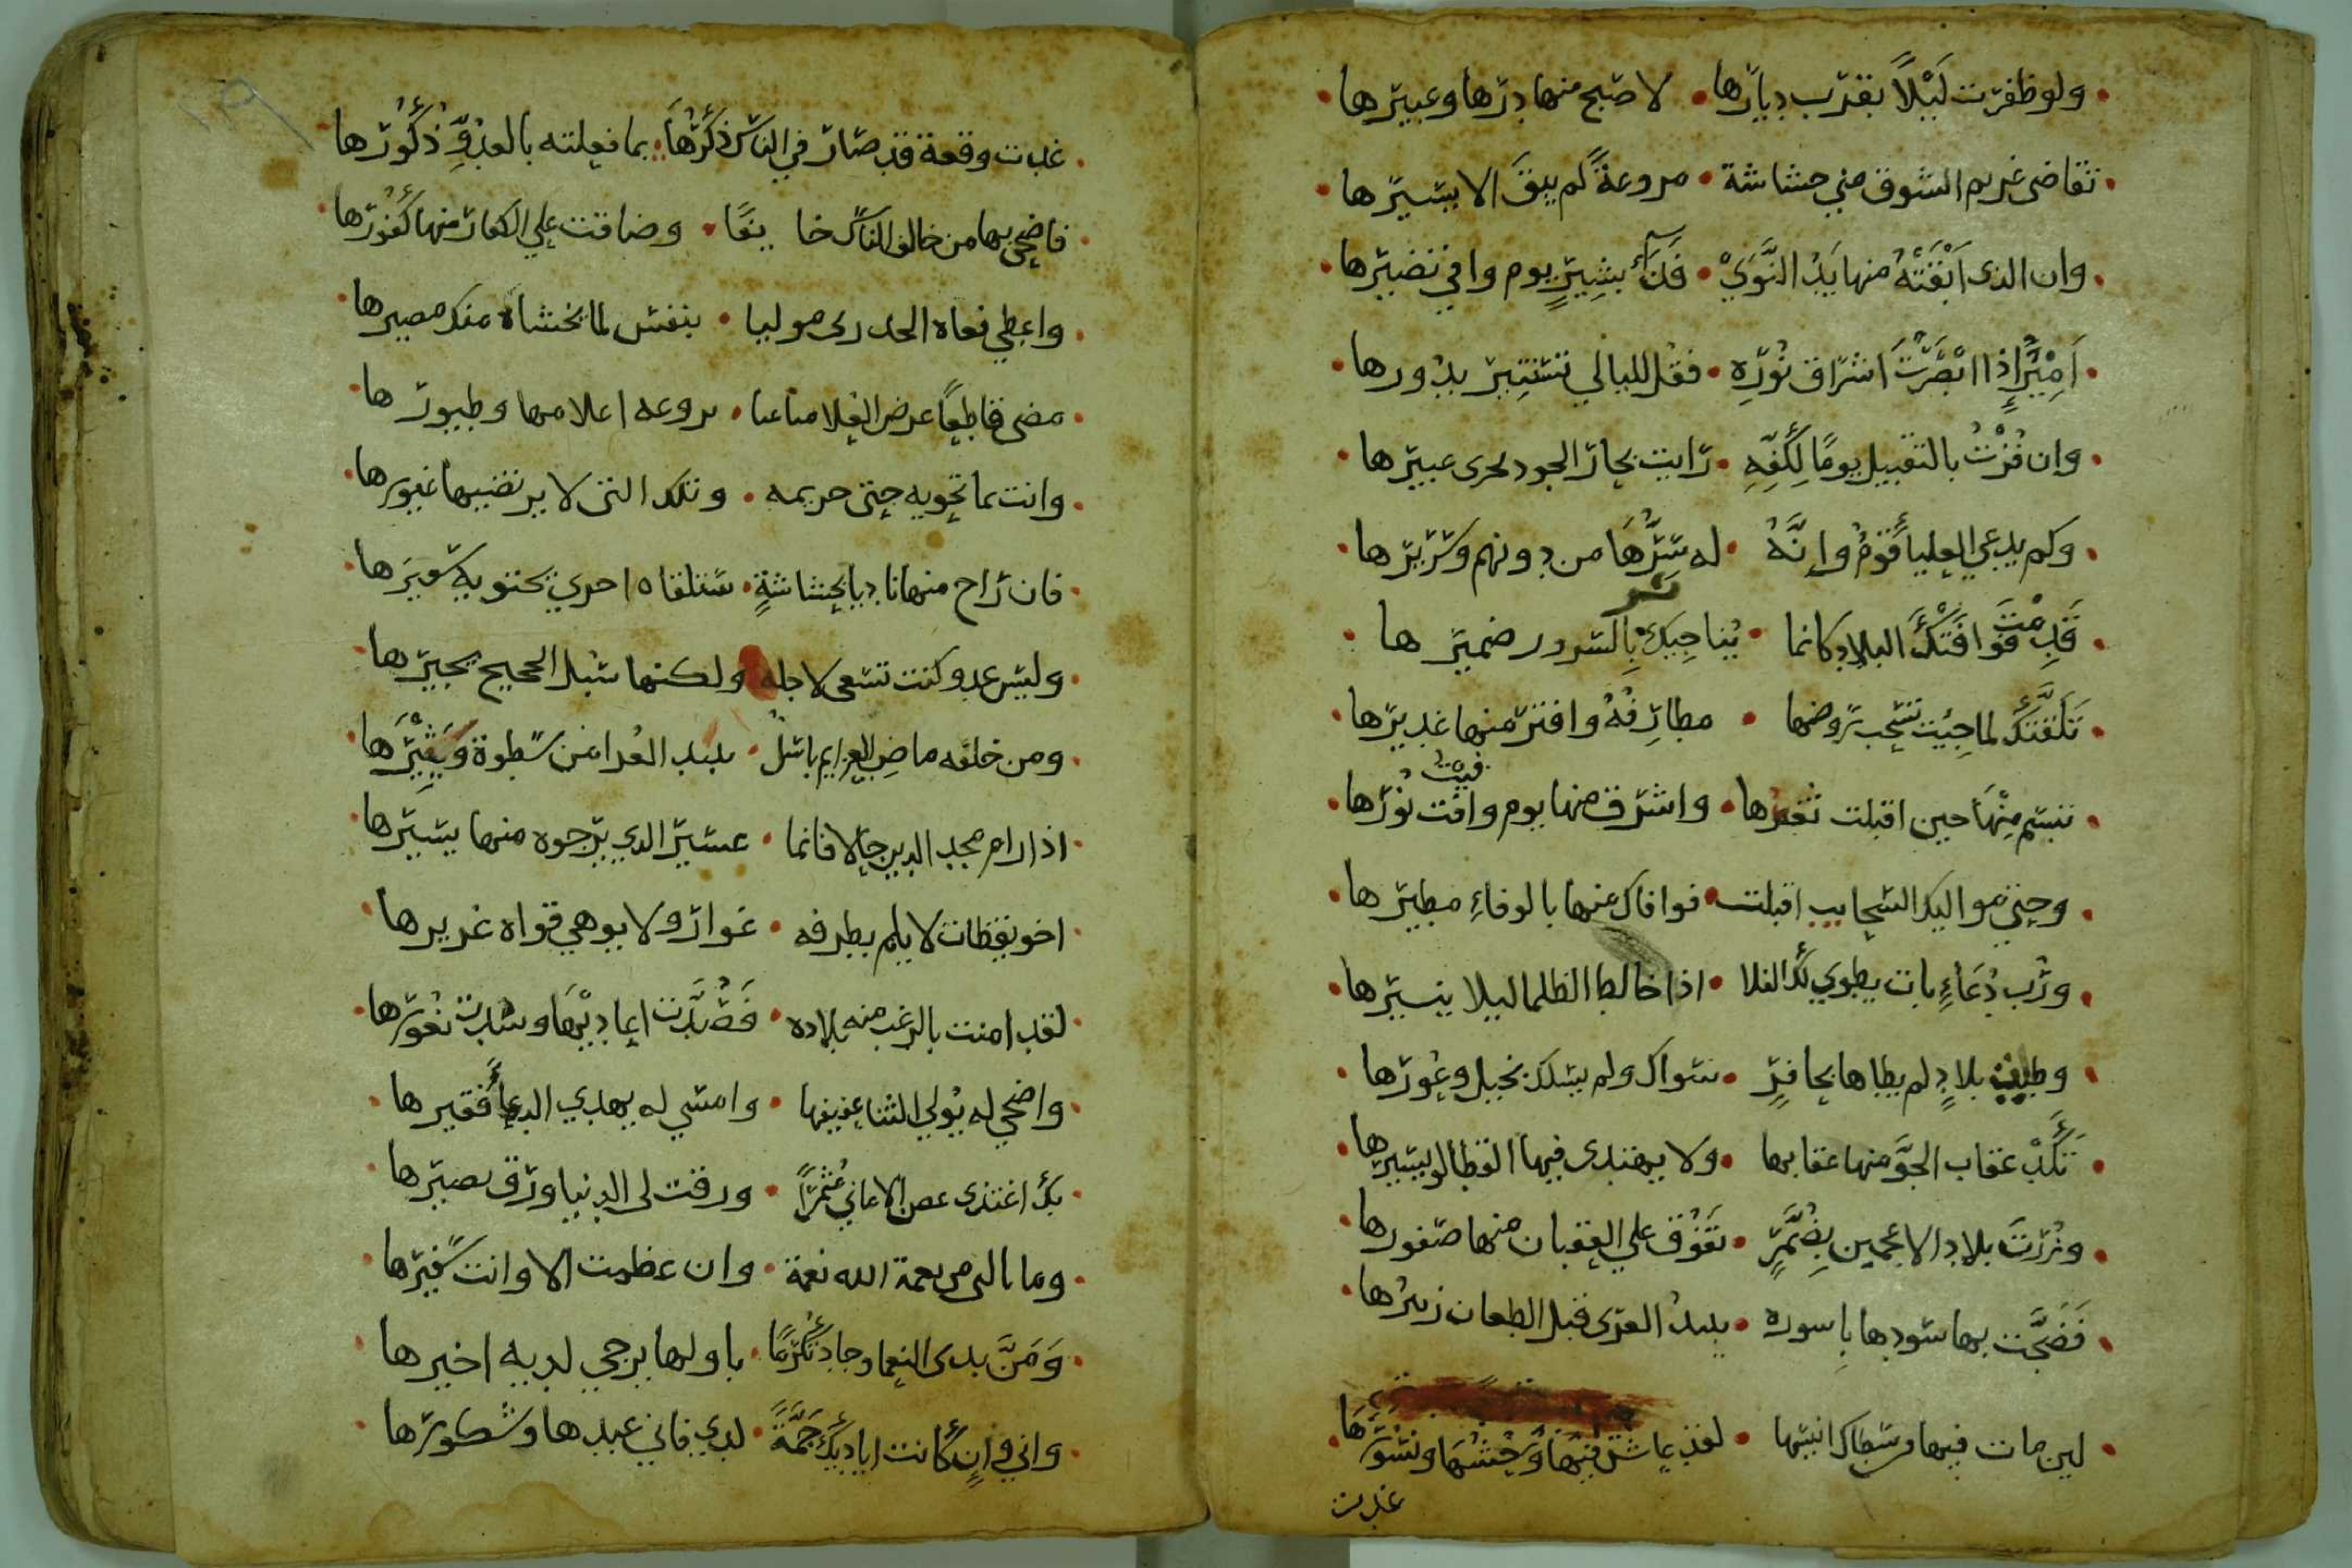 ولو ظفرت لَيْلاً بقرب ديارها • لاصبح منها درها وعبيرها
تقاضى غريم الشوق مني حشاشة • مروعةً لم يبقَ الا يسيرها
وان الذى اَبْقَتْهُ منها يَدُ النَّوَىْ • فداء بشيرٍ يوم وافى نضيرها
اَمِيْرًا اِذا ابْصَرْتَ اشراق نُوْرِه • فقُل لليالي تستتير بدورها
وان فُزْتُ بالتقبيل يومًا لِكَفِّهِ • رايت بحار الجود يجرى عبيرها
وكم يدعي العليا قومٌ وإنَّهُ • له سِرُّهَا من دونهم وسريرها
قَدِمْتَ فَوَافَتْكَ البلاد كانما • يُناجِيك بالسرور ضميرها
تَلَقَّتكَ لما جِئيت تسحب روضها • مطارِفُهُ وافتر منها غديرها
تبسم مِنْهَا حين اقبلت ثغرها • واشرق منها يوم وافيت نُوْرُها
وحتى مواليك السحايب اقبلت • فوافاك منها بالوفاءِ مطيرها
ورُب دُعَاءٍ بات يطوي لك الفلا • اذا خالط الظلما ليلا ينيرها
وطيت بلادٍ لم يطاها بحافرٍ • سواك ولم يسلك بخيل وعُورها
تَكِلُّ عقاب الجوَّ منها عقابها • ولا يهتدى فيها القطا لو يسيرها
وزرتَ بلاد الاعجمين بِضُمَّرٍ • تَفَوُّق علي العقبان منها صقورها
فَضَجَّت بها سودها باسوده • يبيد العدى قبل الطعان زئيرُها
لين مات فيها من سطاك انيسها • لقد عاش فيها وحشها ونسورها
غدت
غدت وقعة قد صار في الناس ذكرُهَا • بما فعلته بالعدوِّ ذُكُوْرُها
فاضحى بها من خالف الناس خا ينًا • وضاقت علي الكفار منها كُفُوْرُها
واعطي قفاه الحدرى موليا • بنفس لما تخشاه منك مصيرها
مضى قاطعًا عرض الفلا متلفتا • تروعه اعلامها وطيورها
وانت بما تحويه حتى حريمه • وتلك التى لا يرتضيها غيورها
فان راح منها ناجيا بحشاشةٍ • ستلقاه اخري تحتويه سعيرها
وليس عدو كنت تسعى لاجله • ولكنها سُبل الحجيج تجيرها
ومن خلفه ماضِ العزايم باسلٌ • يبيد العدا من سطوة ويُبِيْرُهَا
اذا رام مجد الدين حالا فانما • عسير الذي يرجوه منها يسيرها
اخو يقظات لا يلم بطرفه • غرار ولا يوهي قواه غريرها
لقد امنت بالرعب منه بلاده • فَصُدَّت اعاديْهَا وسُدت ثغورها
واضحي له يُولي الثنا عفيفها • وامسي له يهدي الدعا فقيرها
بك اغتدى غصن الاماني مُثْمِرًا • ورقت لى الدنيا ورق نضيرها
وما نالني من نعمة الله نعمة • وان عظمت الا وانت سفيرها
وَمَنَّ بدى النعما وجاد تكَرُّمًا • باولها يرجي لديه اخيرها
واني وانٍ كانت اياديك جَمَّةً • لدي فاني عبدها وشكورها